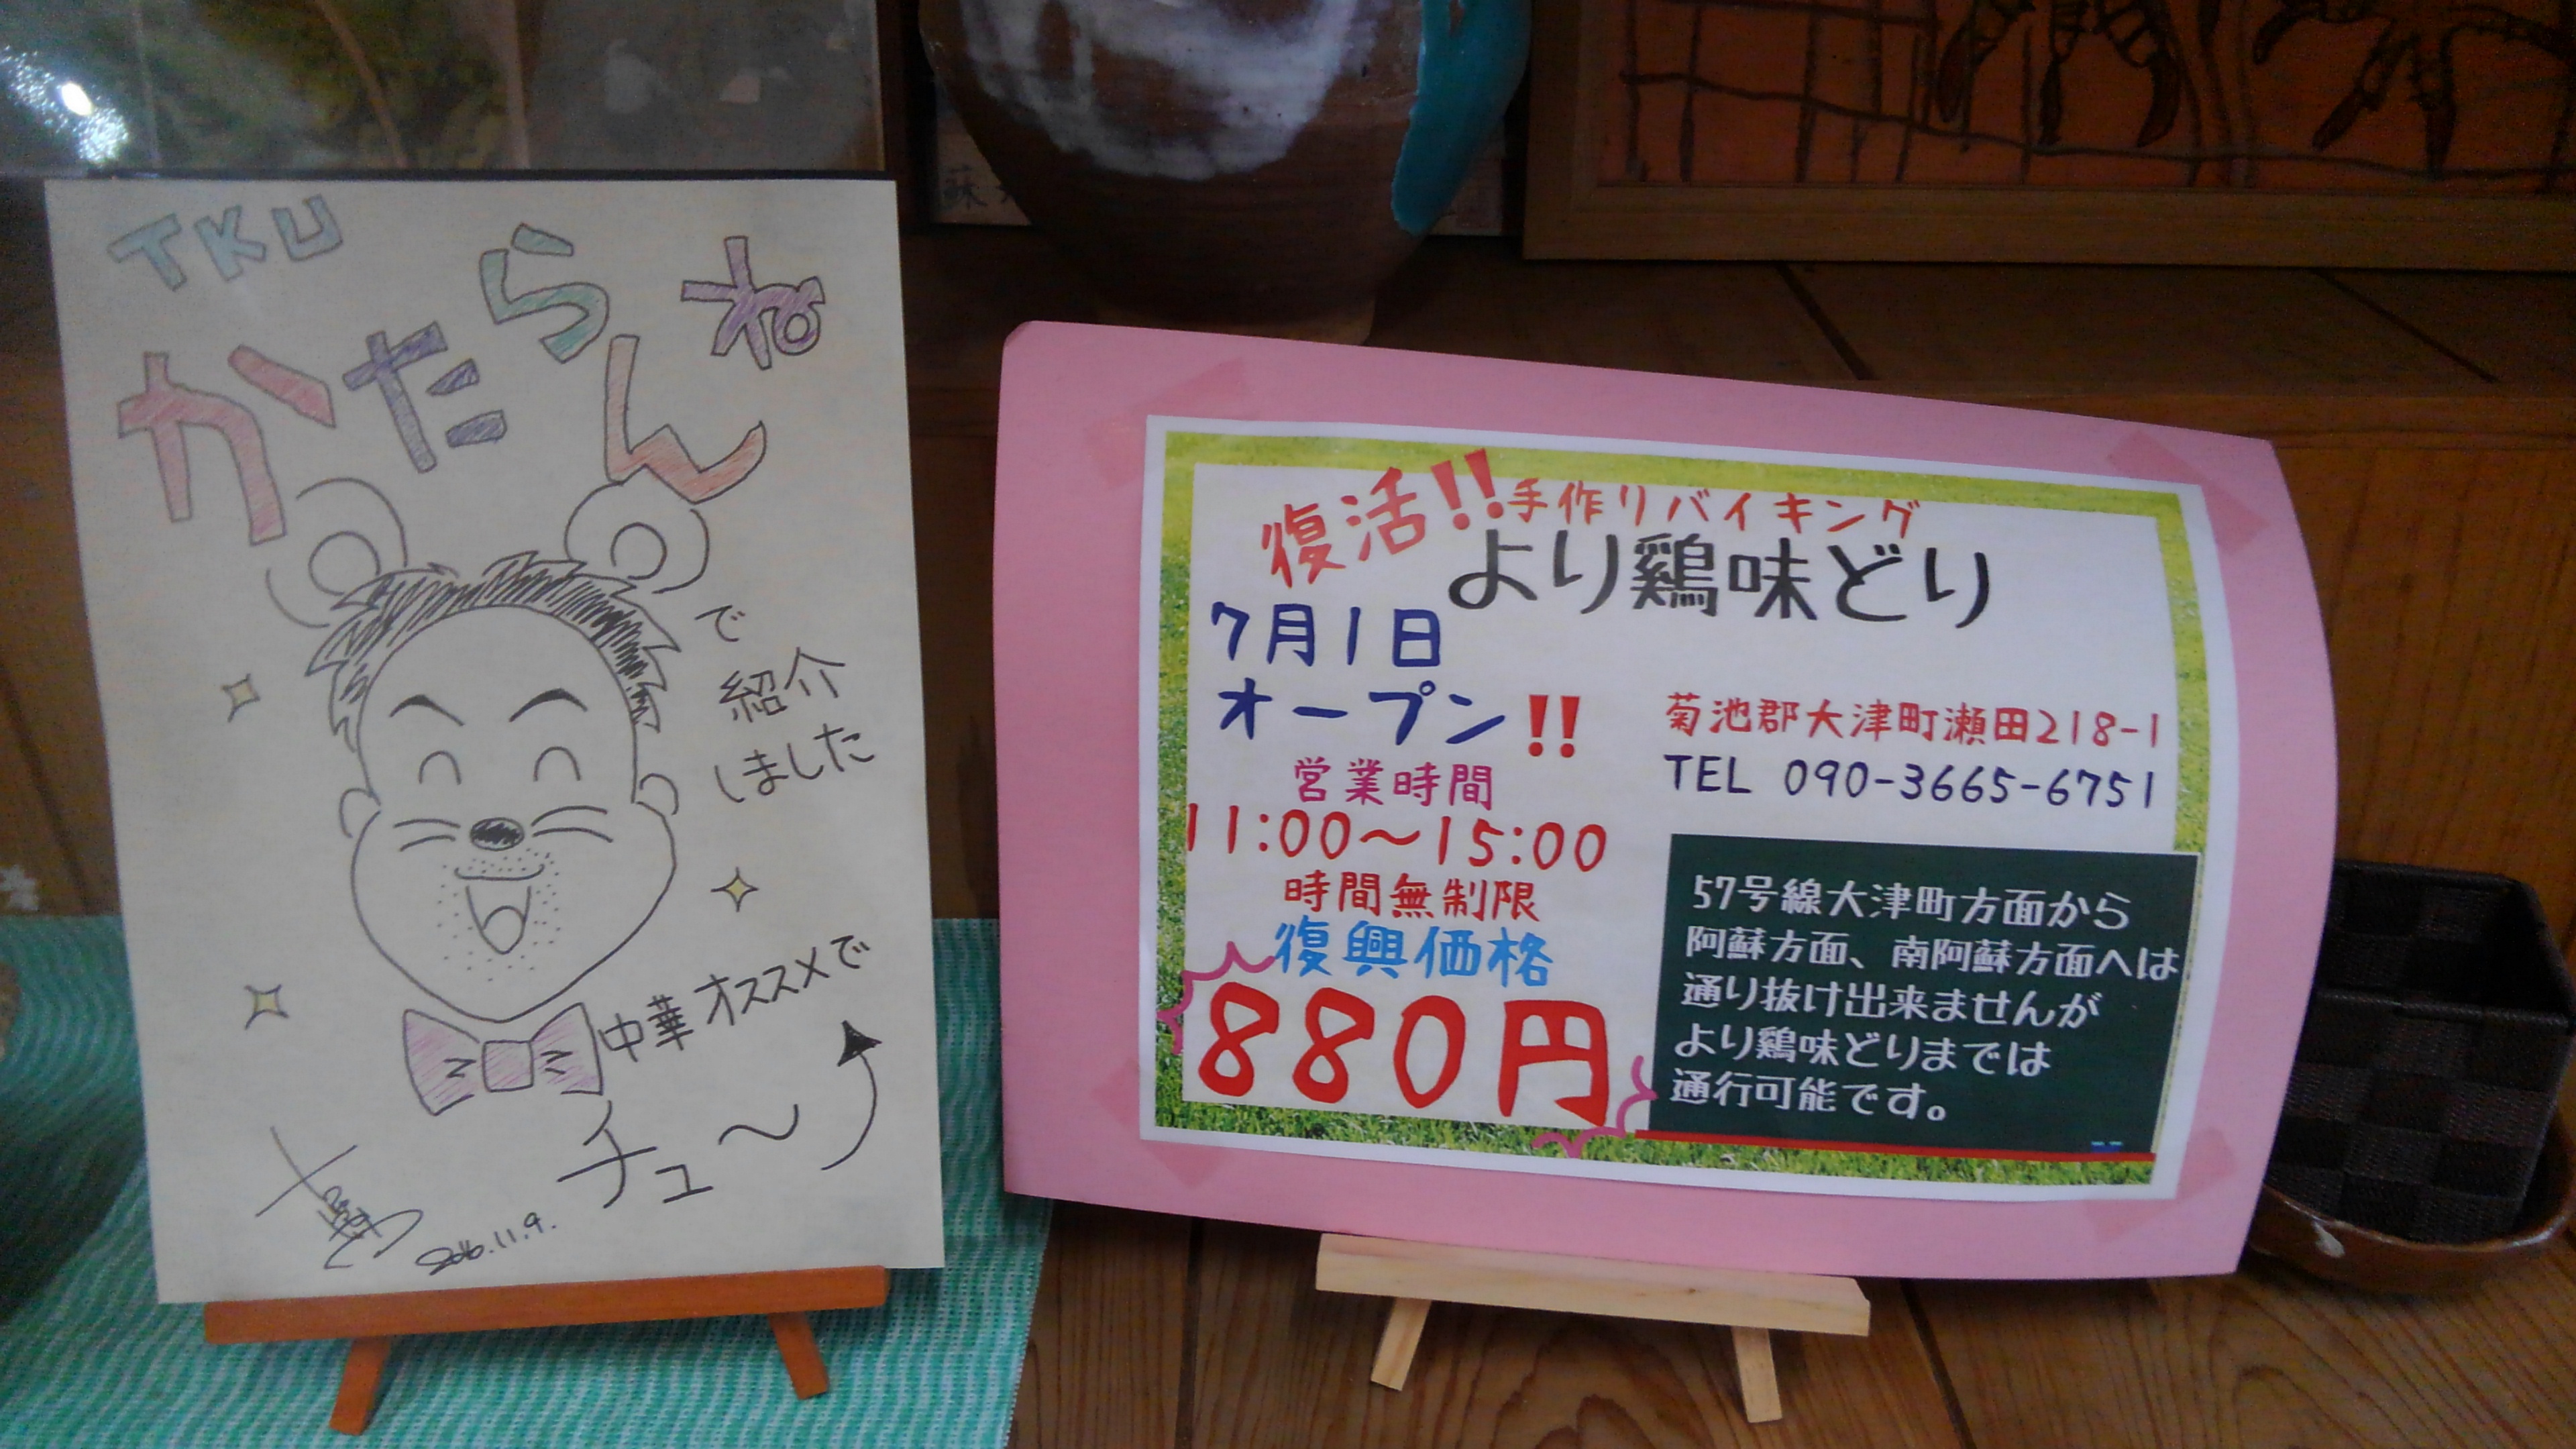 TKU
かたらんね
で
紹介
しました
中華オススメで
チュ〜
2016.11.9.
蘇
復活!!手作りバイキング
より鶏味どり
7月1日
オープン!!
営業時間
11:00〜15:00
時間無制限
復興価格
880円
菊池郡大津町瀬田218-1
TEL 090-3665-6751
57号線大津町方面から
阿蘇方面、南阿蘇方面へは
通り抜け出来ませんが
より鶏味どりまでは
通行可能です。